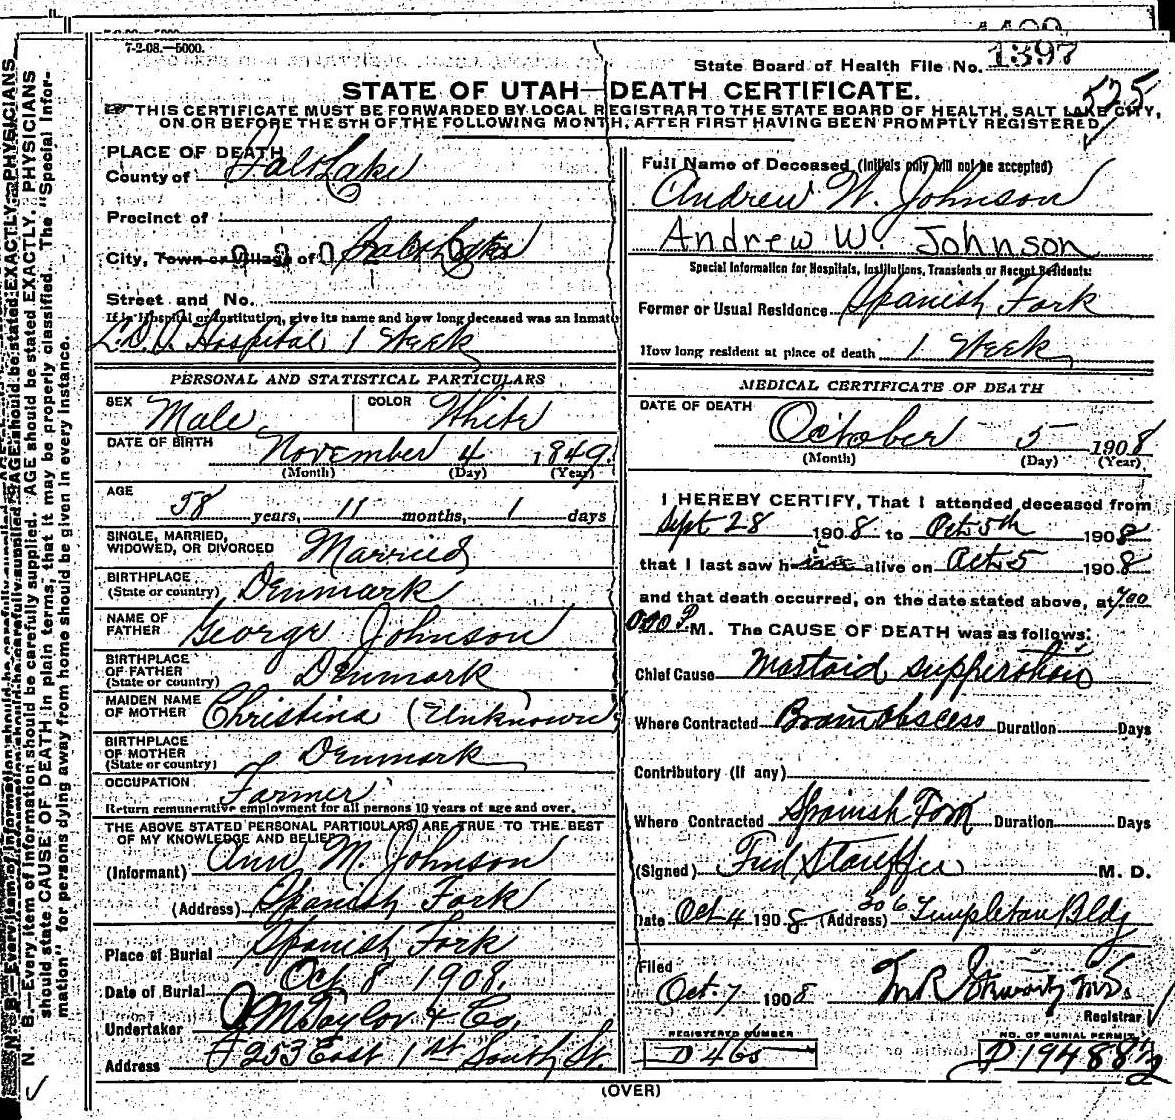 7-2-08.—5000.
State Board of Health File No. 1397
525
STATE OF UTAH—DEATH CERTIFICATE.
THIS CERTIFICATE MUST BE FORWARDED BY LOCAL REGISTRAR TO THE STATE BOARD OF HEALTH, SALT LAKE CITY,
ON OR BEFORE THE 5TH OF THE FOLLOWING MONTH, AFTER FIRST HAVING BEEN PROMPTLY REGISTERED
PLACE OF DEATH
County of Salt Lake
Precinct of
City, Town or Village of Salt Lake
Street and No.
If in Hospital or Institution, give its name and how long deceased was an inmate
L.D.S. Hospital 1 Week
PERSONAL AND STATISTICAL PARTICULARS
SEX Male COLOR White
DATE OF BIRTH November 4 1849
(Month) (Day) (Year)
AGE
58 years, 11 months, 1 days
SINGLE, MARRIED,
WIDOWED, OR DIVORCED Married
BIRTHPLACE
(State or country) Denmark
NAME OF
FATHER George Johnson
BIRTHPLACE
OF FATHER
(State or country) Denmark
MAIDEN NAME
OF MOTHER Christina (Unknown)
BIRTHPLACE
OF MOTHER
(State or country) Denmark
OCCUPATION Farmer
Return remunerative employment for all persons 10 years of age and over.
THE ABOVE STATED PERSONAL PARTICULARS ARE TRUE TO THE BEST
OF MY KNOWLEDGE AND BELIEF
(Informant) Ann M. Johnson
(Address) Spanish Fork
Place of Burial Spanish Fork
Date of Burial Oct 8 1908.
Undertaker Taylor & Co.
Address 253 East 1st South St.
Full Name of Deceased (Initials only will not be accepted)
Andrew W. Johnson
Andrew W. Johnson
Special Information for Hospitals, Institutions, Transients or Recent Residents:
Former or Usual Residence Spanish Fork
How long resident at place of death 1 Week
MEDICAL CERTIFICATE OF DEATH
DATE OF DEATH
October 5 1908
(Month) (Day) (Year)
I HEREBY CERTIFY, That I attended deceased from
Sept 28 1908 to Oct 5th 1908
that I last saw him alive on Oct 5 1908
and that death occurred, on the date stated above, at 7 00
P M. The CAUSE OF DEATH was as follows:
Chief Cause Mastoid suppuration
Where Contracted Brain Abscess Duration Days
Contributory (If any)
Where Contracted Spanish Fork Duration Days
(Signed) Fred Stauffer M. D.
Date Oct 4 1908 (Address) 306 Templeton Bldg
Filed
Oct 7 1908
Registrar
REGISTERED NUMBER
D 465
NO. OF BURIAL PERMIT
(OVER)
N. B.—Every item of information should be carefully supplied. AGE should be stated EXACTLY. PHYSICIANS
should state CAUSE OF DEATH in plain terms, that it may be properly classified. The "Special Infor-
mation" for persons dying away from home should be given in every instance.